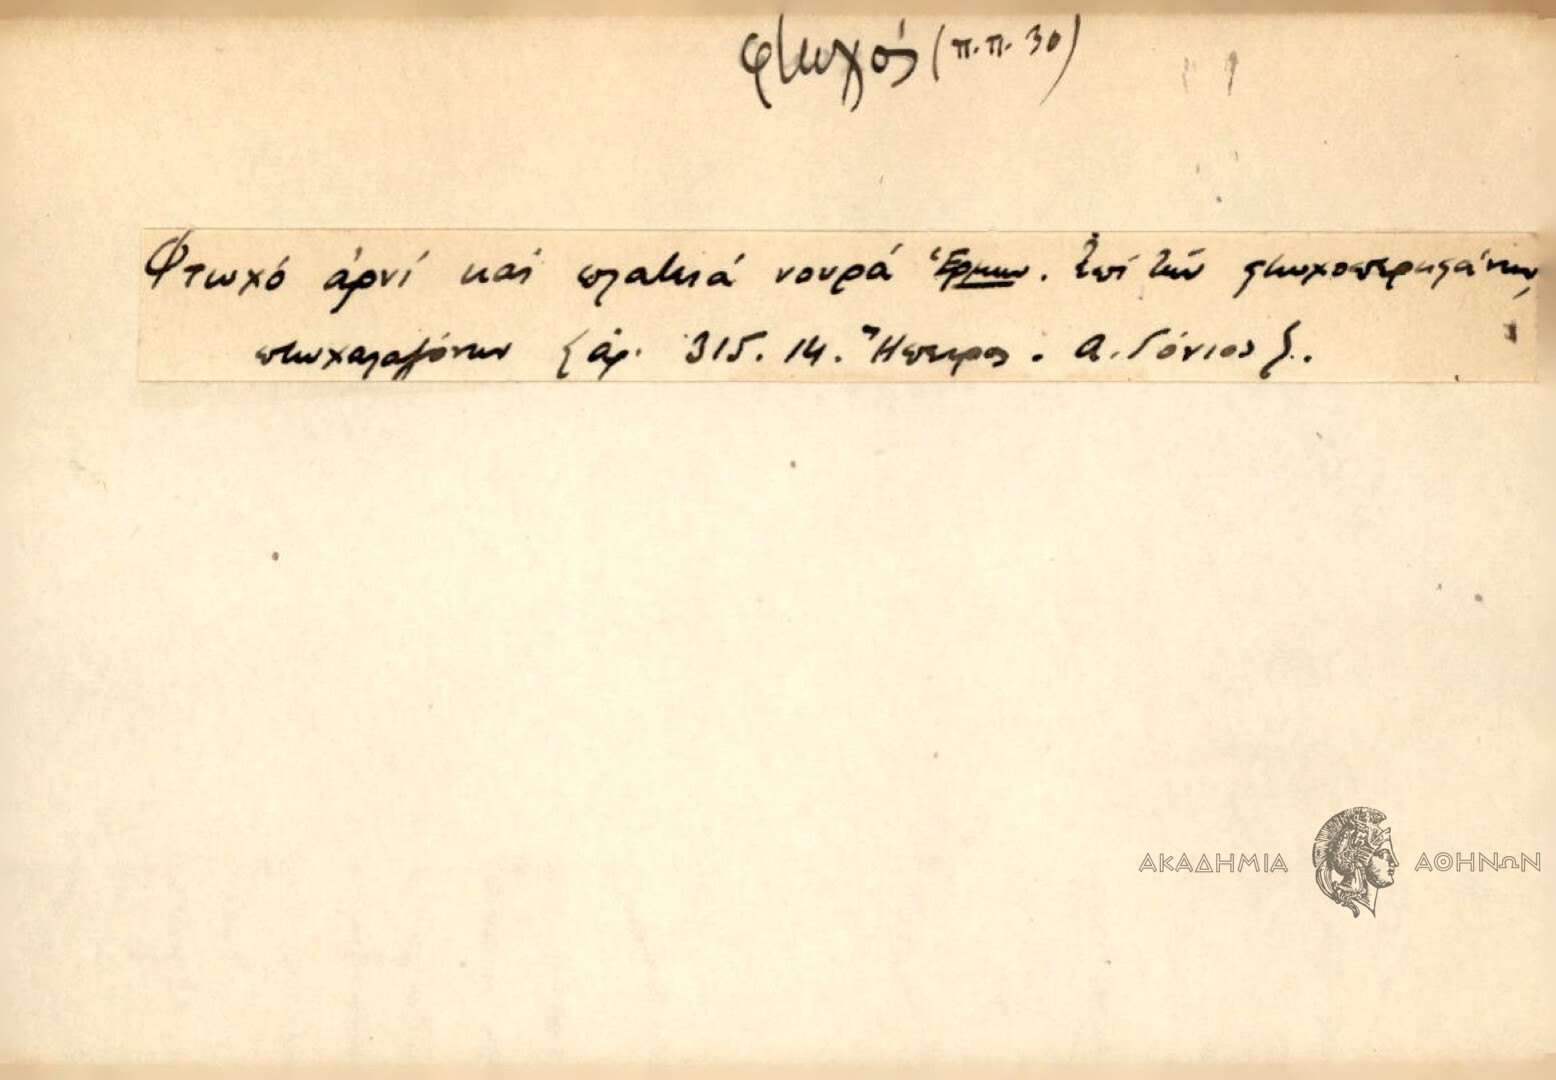 φτωχός (π.π. 30)
Φτωχό ἀρνί καί πλατειά νουρά Ἑρμην. Ἐπί τῶν φτωχοπερηφάνων,
πτωχαλαζόνων {ἀρ. 315. 14. Ἤπειρος. Α. Γόνιος}.
ΑΚΑΔΗΜΙΑ ΑΘΗΝΩΝ